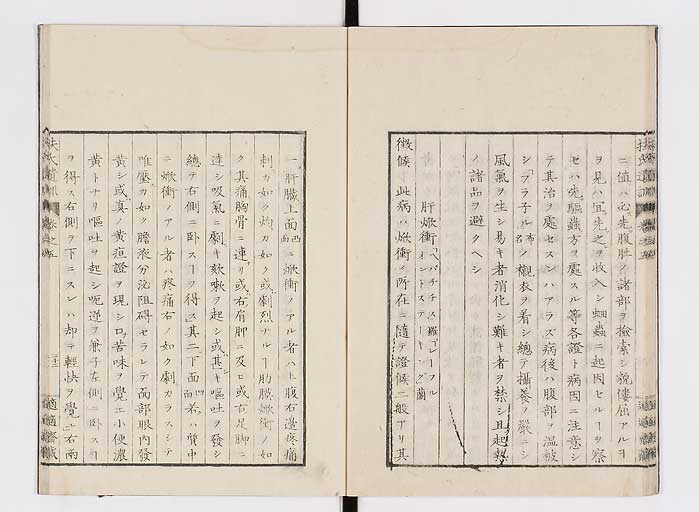 ニ値ハ必先腹肚ノ諸部ヲ撿索シ貌僂屈アルヲ
ヲ見ハ宜先之ヲ收入シ蛔蟲ニ起因セルヿヲ察
セハ先驅蟲方ヲ處スル等各證ト病因ニ注意シ
テ其治ヲ處セスンハアラス病後ハ腹部ヲ温被
シフラ子ル布名ノ襯衣ヲ着シ總テ攝養ヲ嚴ニシ
風氣ヲ生シ易キ者消化シ難キ者ヲ禁シ且起熱
ノ諸品ヲ避クヘシ
肝焮衝
徴候 此病ハ焮衝ノ所在ニ隨テ證候二般アリ其
一肝臓上面凸面ニ焮衝ノアル者ハ上腹右邊疼痛
刺カ如ク灼カ如ク或劇烈ナルヿ肋膜焮衝ノ如
ク其痛胸骨ニ連リ或右肩胛ニ及ヒ或右足脚ニ
達シ吸氣ニ劇キ欬嗽ヲ起シ或甚キ嘔吐ヲ發シ
總テ右側ニ臥スヿヲ得ス其二下面凹面若ハ質中
ニ焮衝ノアル者ハ疼痛右ノ如ク劇カラスシテ
唯壓カ如ク膽液分泌阻碍セラレテ面部眼内發
黄シ或真ノ黄疸證ヲ現シ口苦味ヲ覺エ小便濃
黄トナリ嘔吐ヲ起シ呃逆ヲ兼子左側ニ臥スヿ
ヲ得ス右側ヲ下ニスレハ却テ輕快ヲ覺ユ右兩
扶氏遺訓 卷之五
適適齋藏